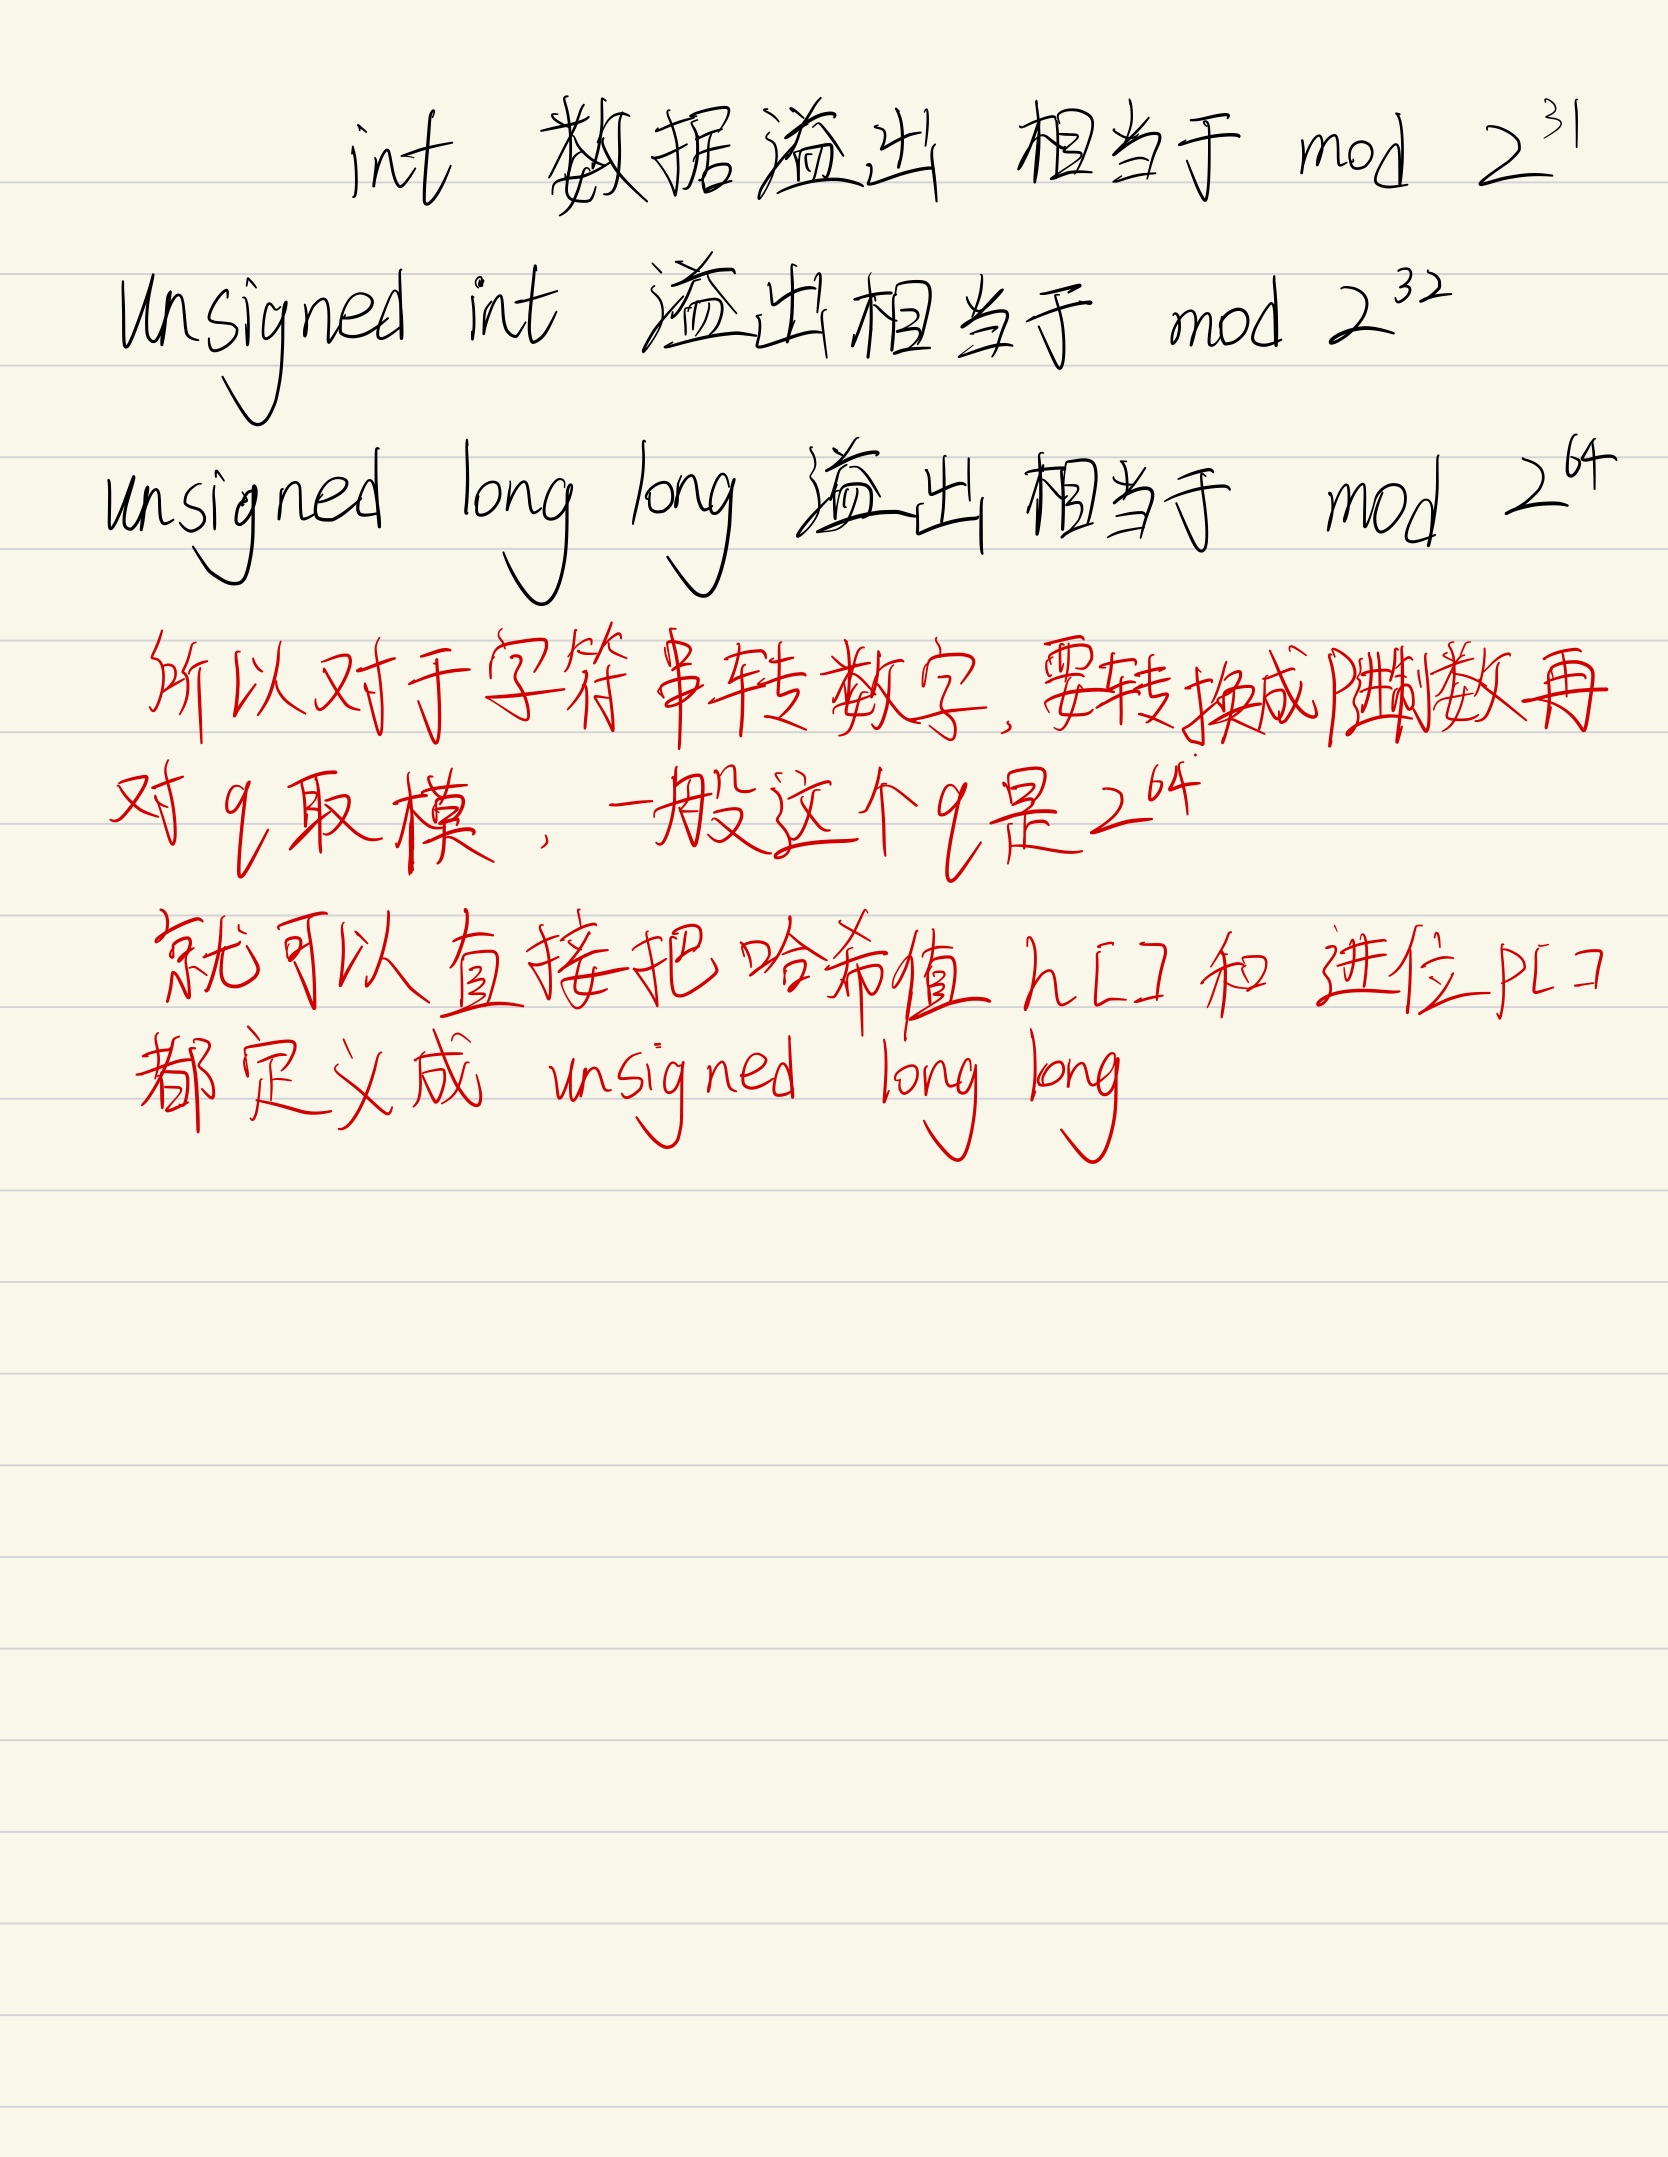 int 数据溢出 相当于 mod 2^31
unsigned int 溢出相当于 mod 2^32
unsigned long long 溢出相当于 mod 2^64
所以对于字符串转数字,要转换成P进制数再
对q取模,一般这个q是2^64
就可以直接把哈希值h[]和进位p[]
都定义成 unsigned long long